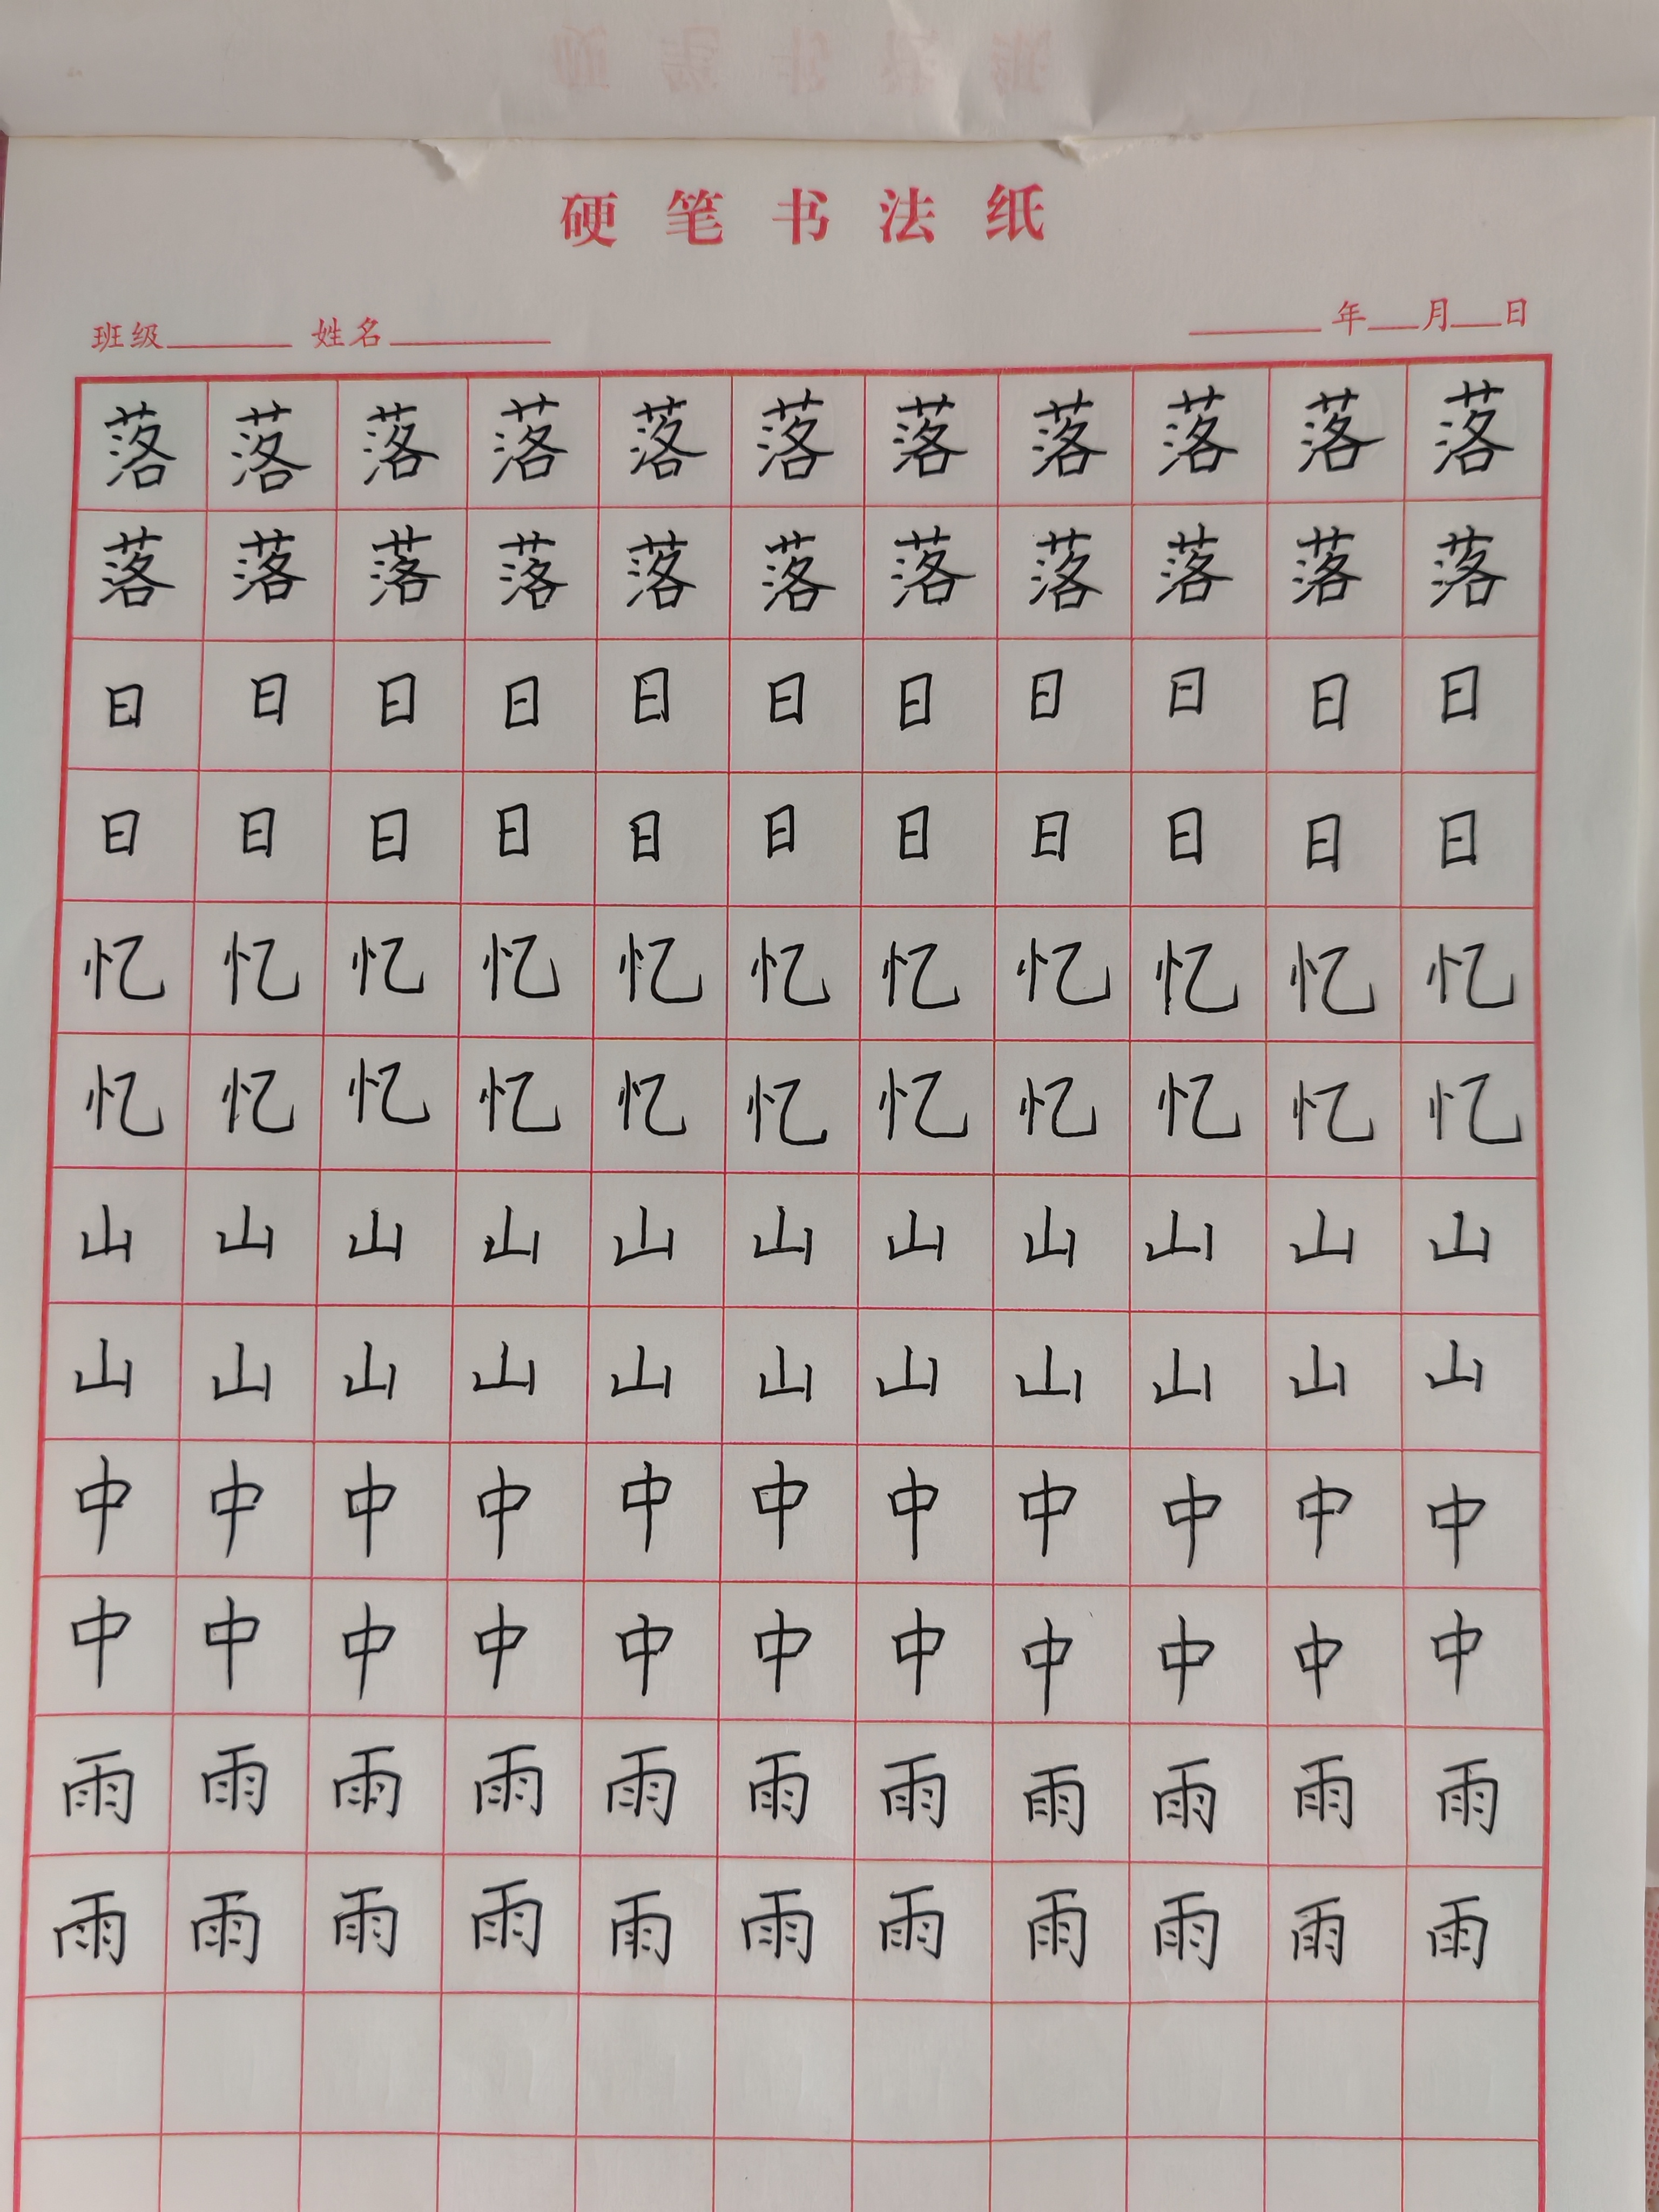 硬笔书法纸
班级 姓名 年 月 日
落落落落落落落落落落落
落落落落落落落落落落落
日日日日日日日日日日日
日日日日日日日日日日日
忆忆忆忆忆忆忆忆忆忆忆
忆忆忆忆忆忆忆忆忆忆忆
山山山山山山山山山山山
山山山山山山山山山山山
中中中中中中中中中中中
中中中中中中中中中中中
雨雨雨雨雨雨雨雨雨雨雨
雨雨雨雨雨雨雨雨雨雨雨